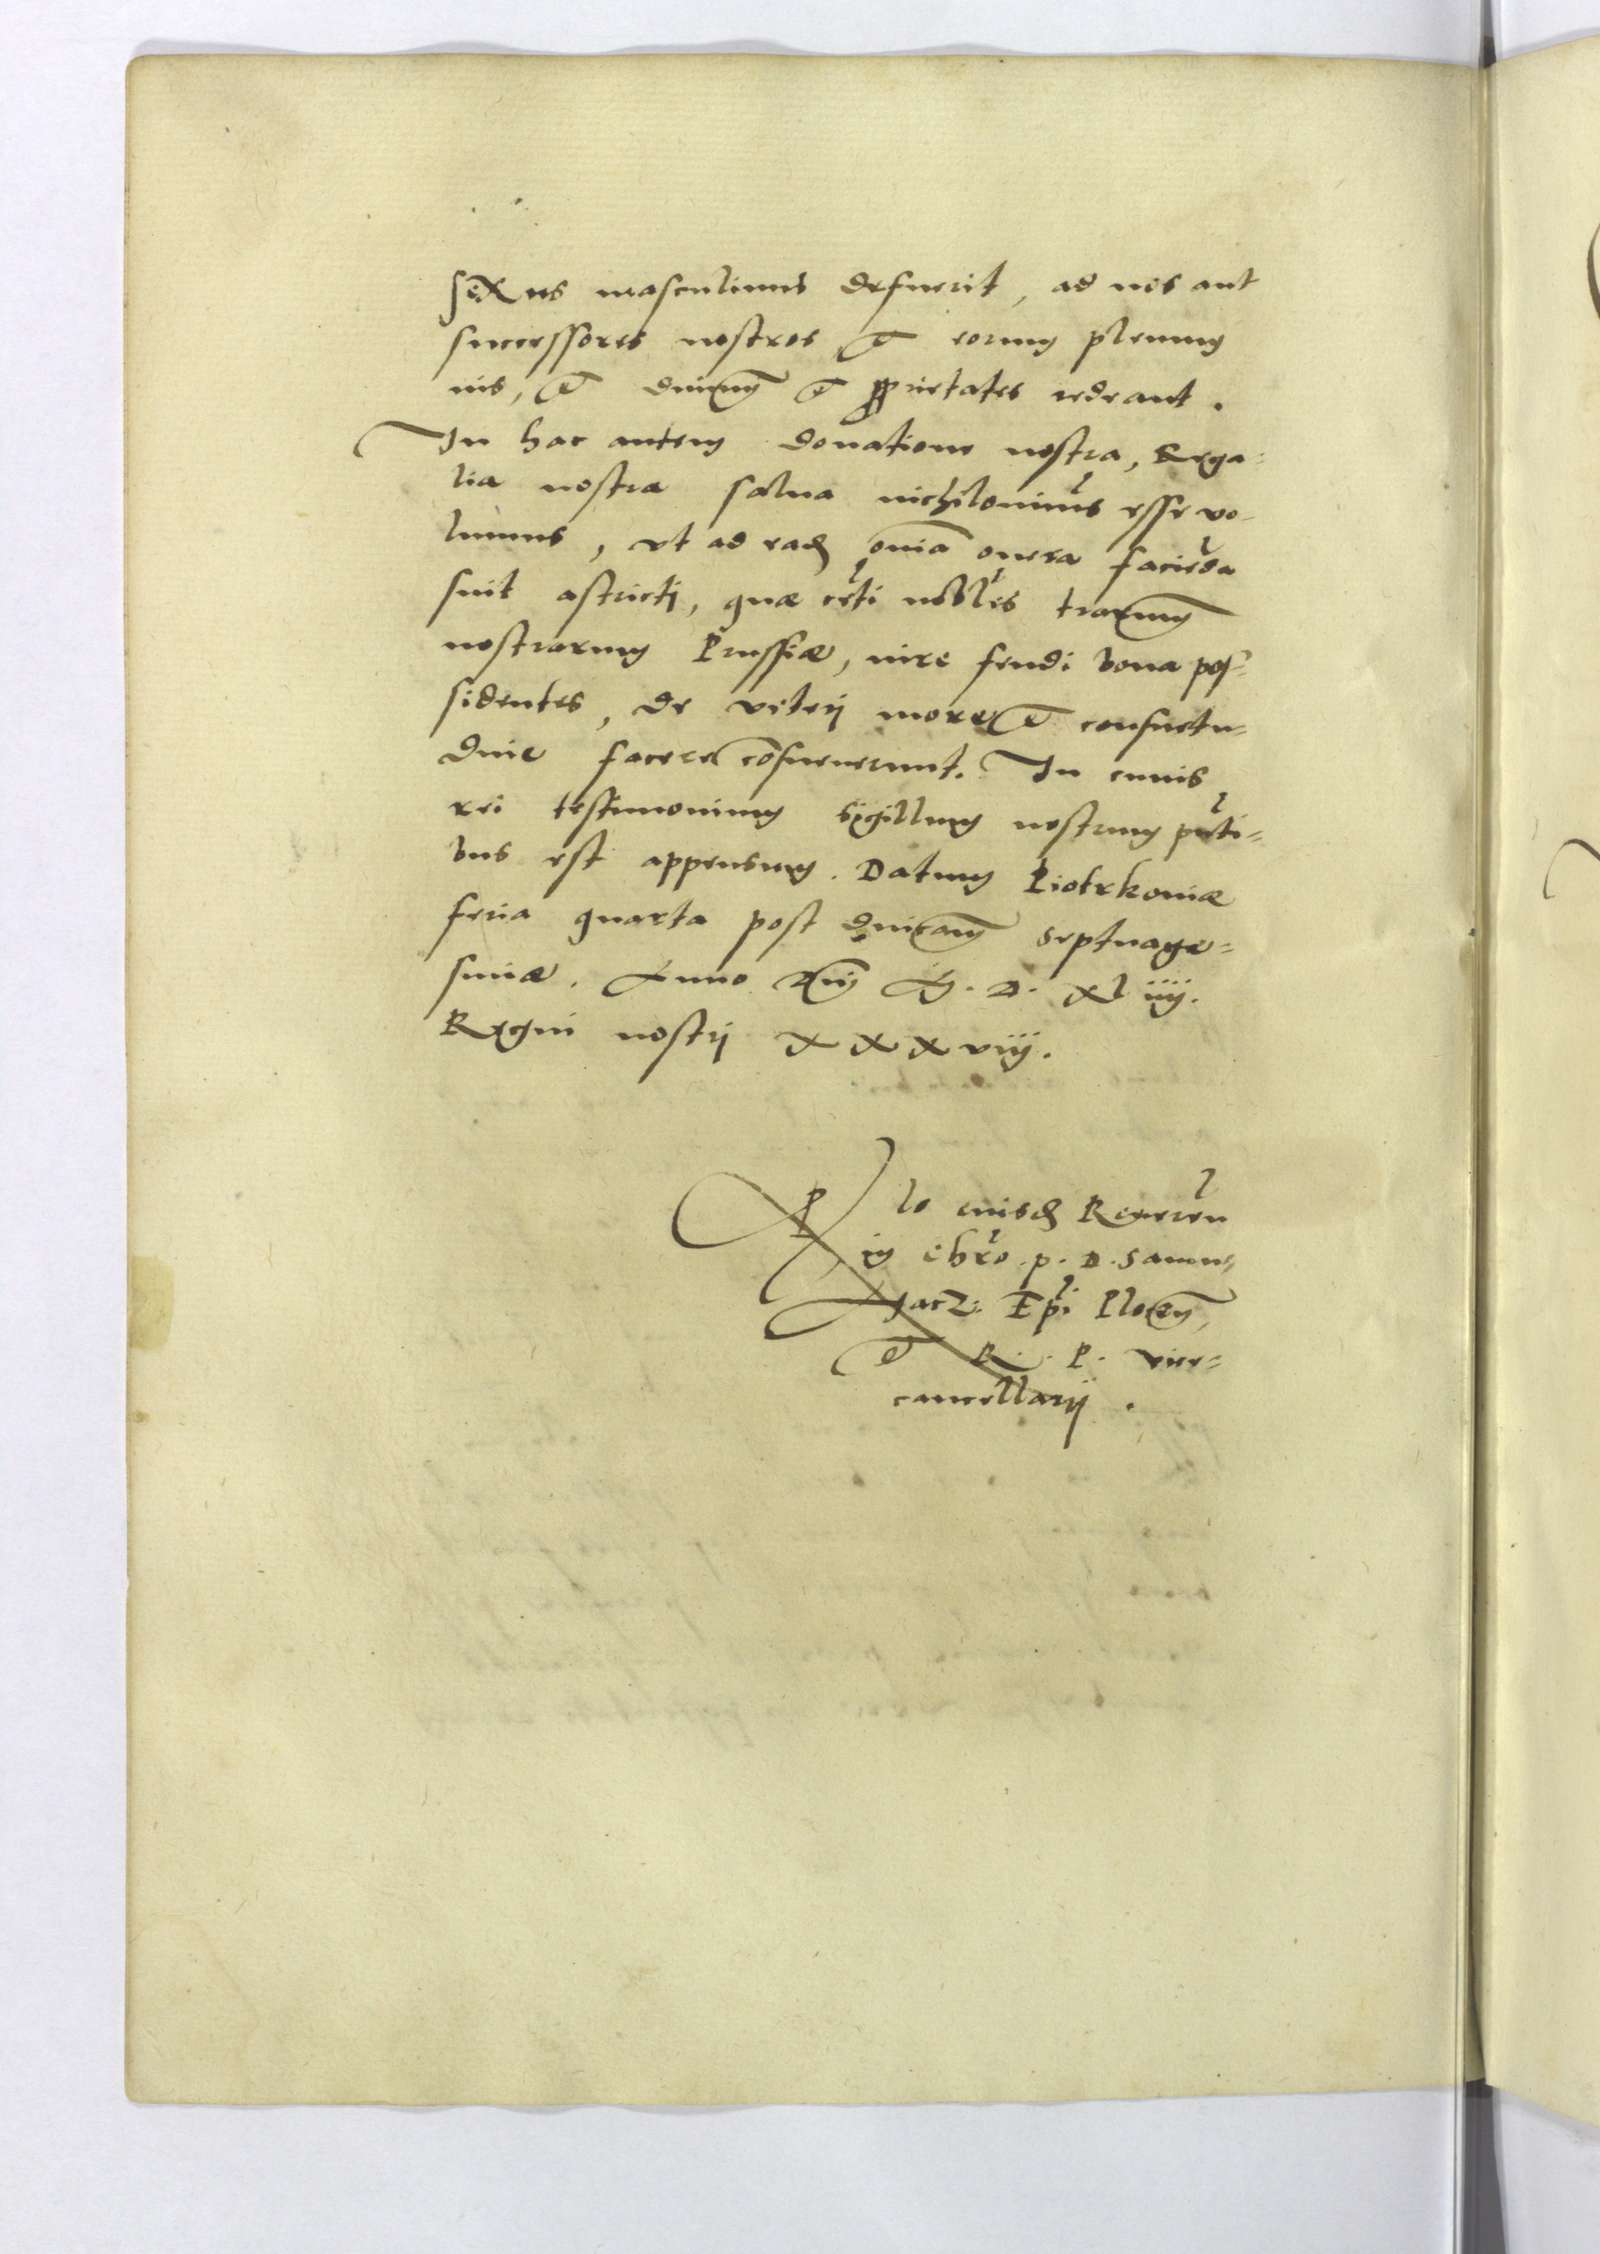 sexus masculinus defuerit, ad nos aut
successores nostros & eorum plenum
ius, & dnium & proprietates redeant.
In hac autem donatione nostra, Rega-
lia nostra salua nichilominus esse vo-
lumus, vt ad eadem omia onera facienda
sint astricti, quæ cęti nobles trarum
nostrarum Prussiæ, iure feudi bona pos-
sidentes, de veterj more & consuetu-
dine facere cōsueuerunt. In cuius
rei testimonium sigillum nostrum pnti-
bus est appensum. Datum Piotrkoniæ
feria quarta post dnicam Septuage-
simæ. Anno Dnj M. D. xl iiij.
Regni nostrj xxxviij.
Rlo eiusdem Reueren
in chro. p. D. Samu-
Epi Plocen,
& R. P. vice-
cancellarij.